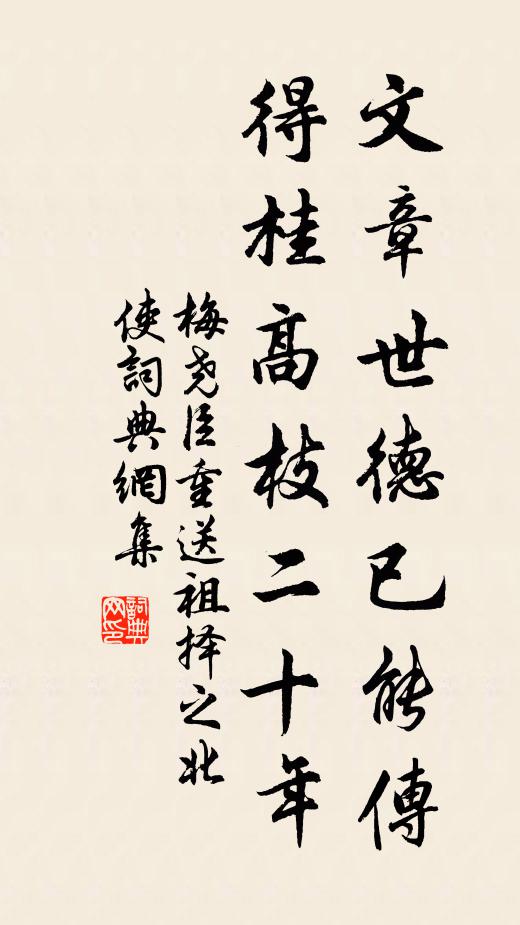 文章世德已能傳
得桂高枝二十年
梅尧臣重送祖择之北
使詞典網集
詞典
网印